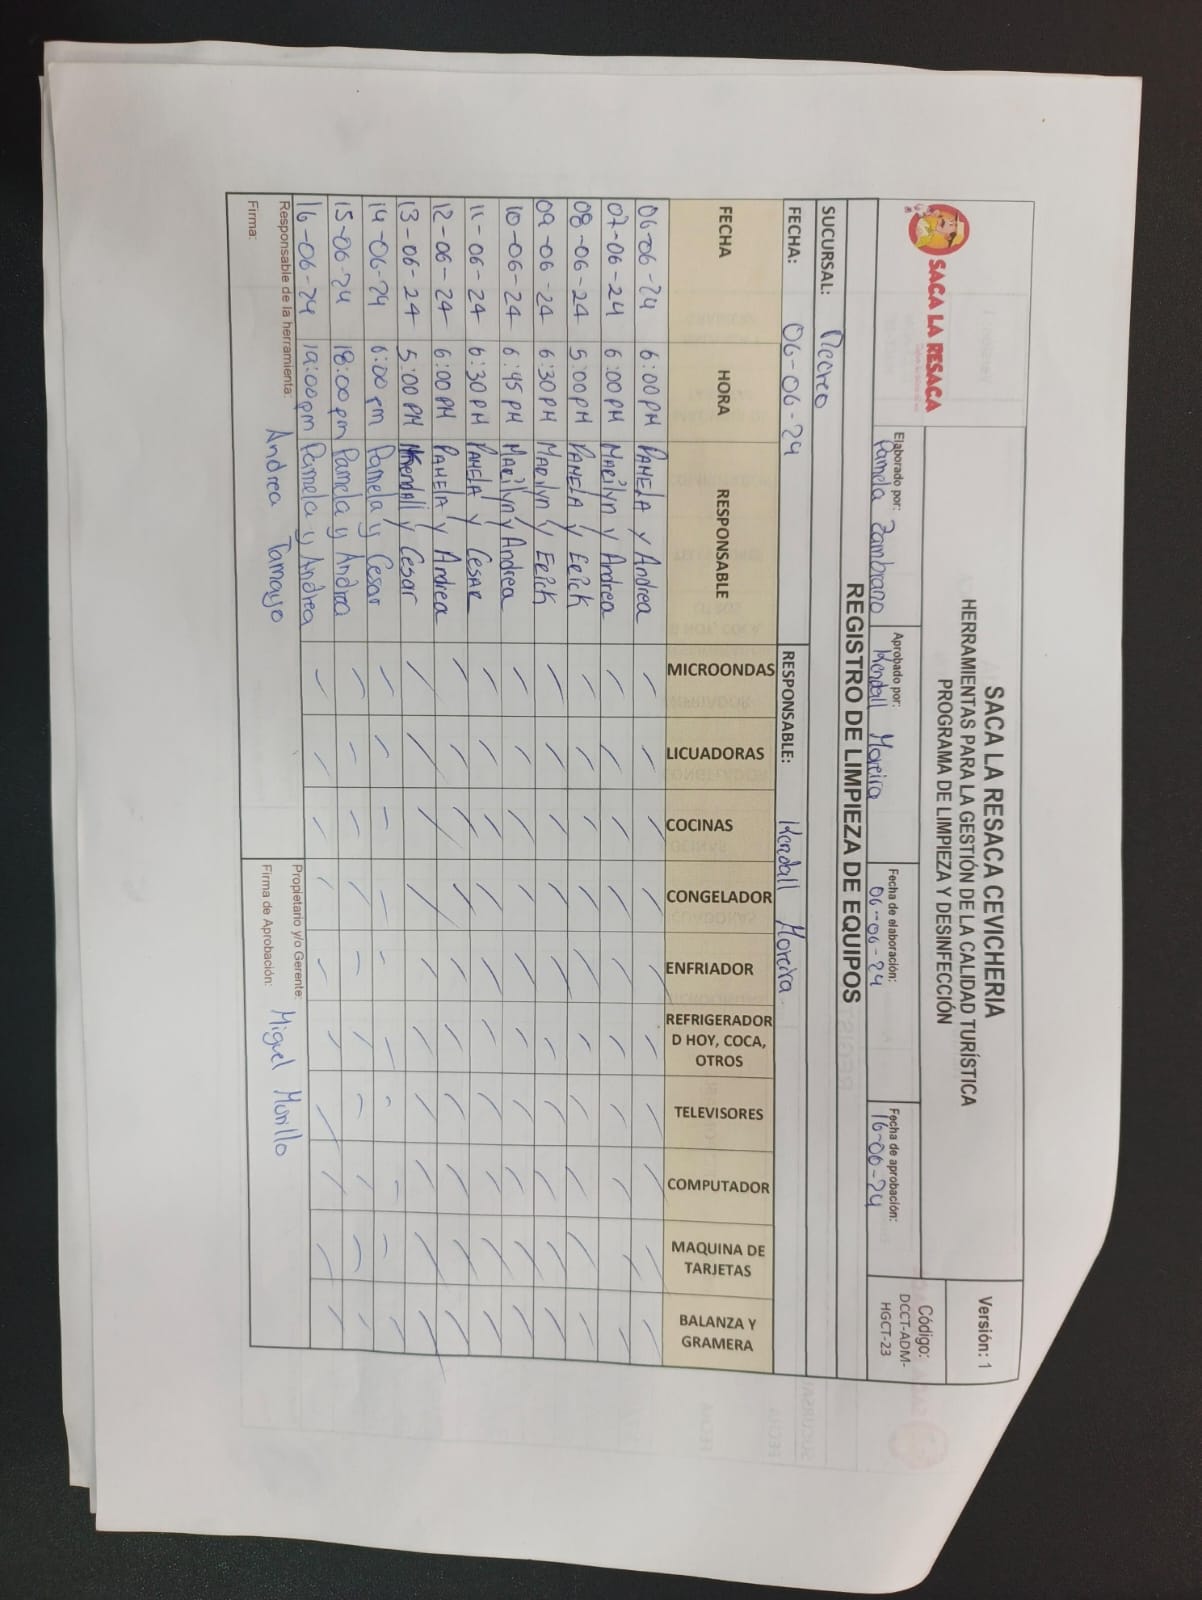 SACA LA RESACA
SACA LA RESACA CEVICHERIA
HERRAMIENTAS PARA LA GESTIÓN DE LA CALIDAD TURÍSTICA
PROGRAMA DE LIMPIEZA Y DESINFECCIÓN
Versión: 1
Elaborado por: Pamela Zambrano
Aprobado por: Kendall Moreira
Fecha de elaboración: 06-06-24
Fecha de aprobación: 16-06-24
Código: DCCT-ADM-HGCT-23
REGISTRO DE LIMPIEZA DE EQUIPOS
SUCURSAL: Recreo
FECHA: 06-06-24 RESPONSABLE: Kendall Moreira
FECHA HORA RESPONSABLE MICROONDAS LICUADORAS COCINAS CONGELADOR ENFRIADOR REFRIGERADOR D HOY, COCA, OTROS TELEVISORES COMPUTADOR MAQUINA DE TARJETAS BALANZA Y GRAMERA
06-06-24 6:00 PM PAMELA y Andrea
07-06-24 6:00 PM MARilyn y Andrea
08-06-24 5:00 PM PAMELA y ERICK
09-06-24 6:30 PM MARilyn y ERICK
10-06-24 6:45 PM MARilyn y Andrea
11-06-24 6:30 PM PAMELA y CESAR
12-06-24 6:00 PM PAMELA y Andrea
13-06-24 5:00 PM Kendall y Cesar
14-06-24 6:00 pm Pamela y Cesar
15-06-24 18:00 pm Pamela y Andrea
16-06-24 19:00 pm Pamela y Andrea
Responsable de la herramienta: Andrea Tamayo
Firma:
Propietario y/o Gerente: Miguel Murillo
Firma de Aprobación: